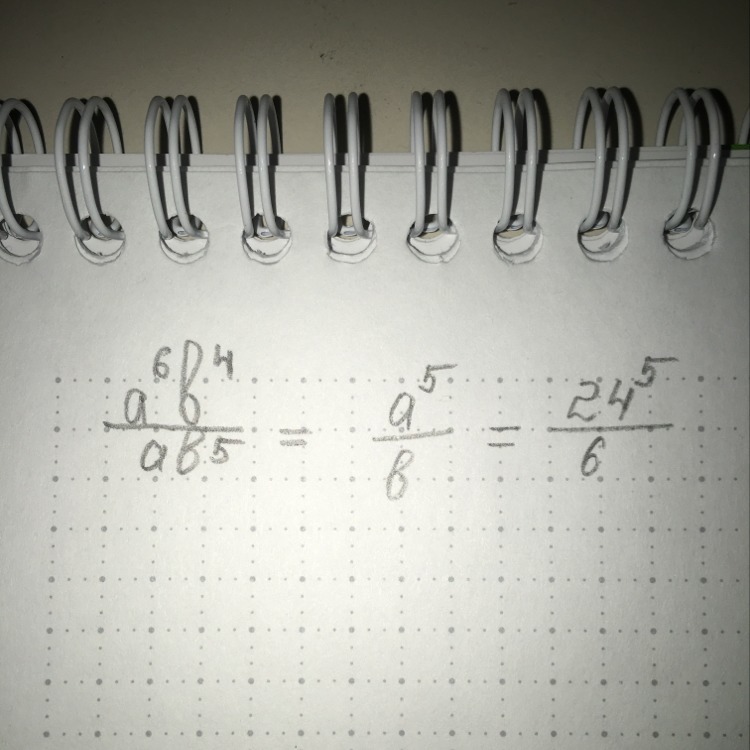 a⁶b⁴/ab⁵ = a⁵/b = 24⁵/6